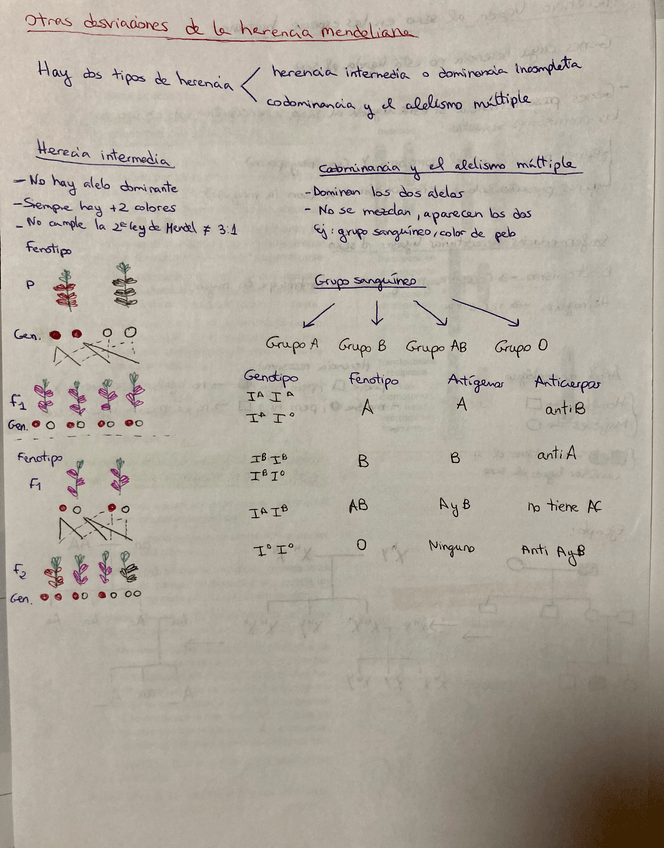 Otras desviaciones de la herencia mendeliana
Hay dos tipos de herencia
herencia intermedia o dominancia incompleta
codominancia y el alelismo múltiple
Herecia intermedia
- No hay alelo dominante
- Siempre hay +2 colores
- No cumple la 2ª ley de Mendel ≠ 3:1
Fenotipo
P
Gen.
F1
Gen.
Fenotipo
F1
F2
Gen.
Codominancia y el alelismo múltiple
- Dominan los dos alelos
- No se mezclan, aparecen los dos
Ej: grupo sanguíneo, color de pelo
Grupo sanguíneo
Grupo A Grupo B Grupo AB Grupo O
Genotipo Fenotipo Antígenos Anticuerpos
Iᴬ Iᴬ
Iᴬ I° A A anti B
Iᴮ Iᴮ
Iᴮ I° B B anti A
Iᴬ Iᴮ AB A y B no tiene AC
I° I° O Ninguno Anti A y B